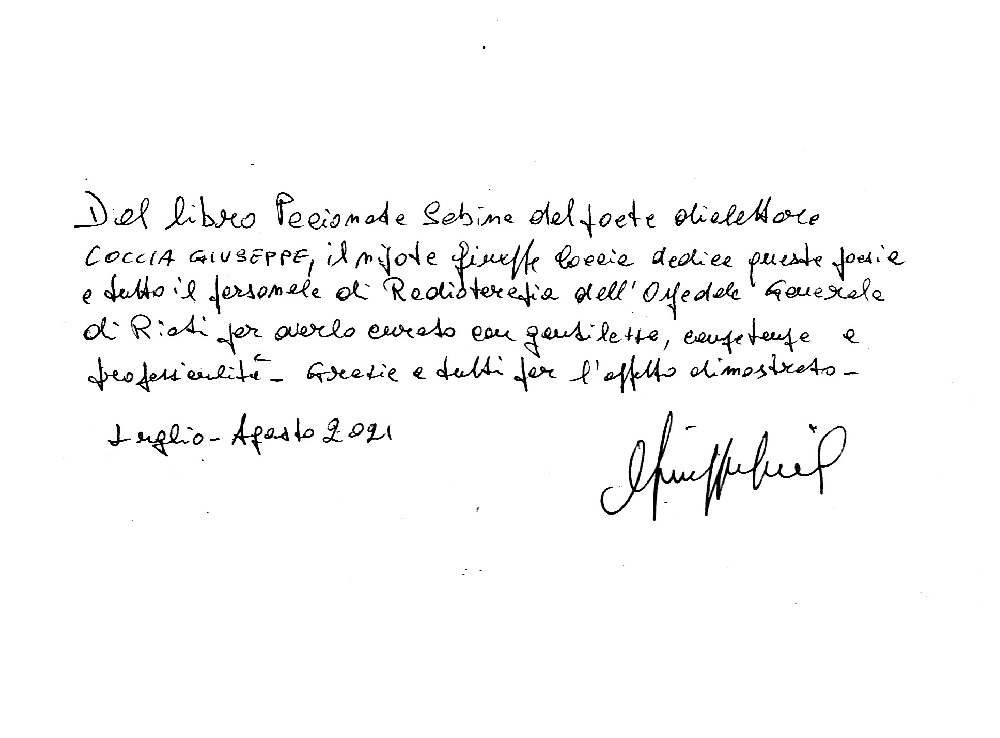 Dal libro Pecionata Sabina del poeta dialettore
COCCIA GIUSEPPE, il nipote Giuseppe Coccia dedica questa poesia
a tutto il personale di Radioterapia dell'Ospedale Generale
di Rieti per averlo curato con gentilezza, competenza e
professionalità - Grazie a tutti per l'affetto dimostrato -
Luglio - Agosto 2021